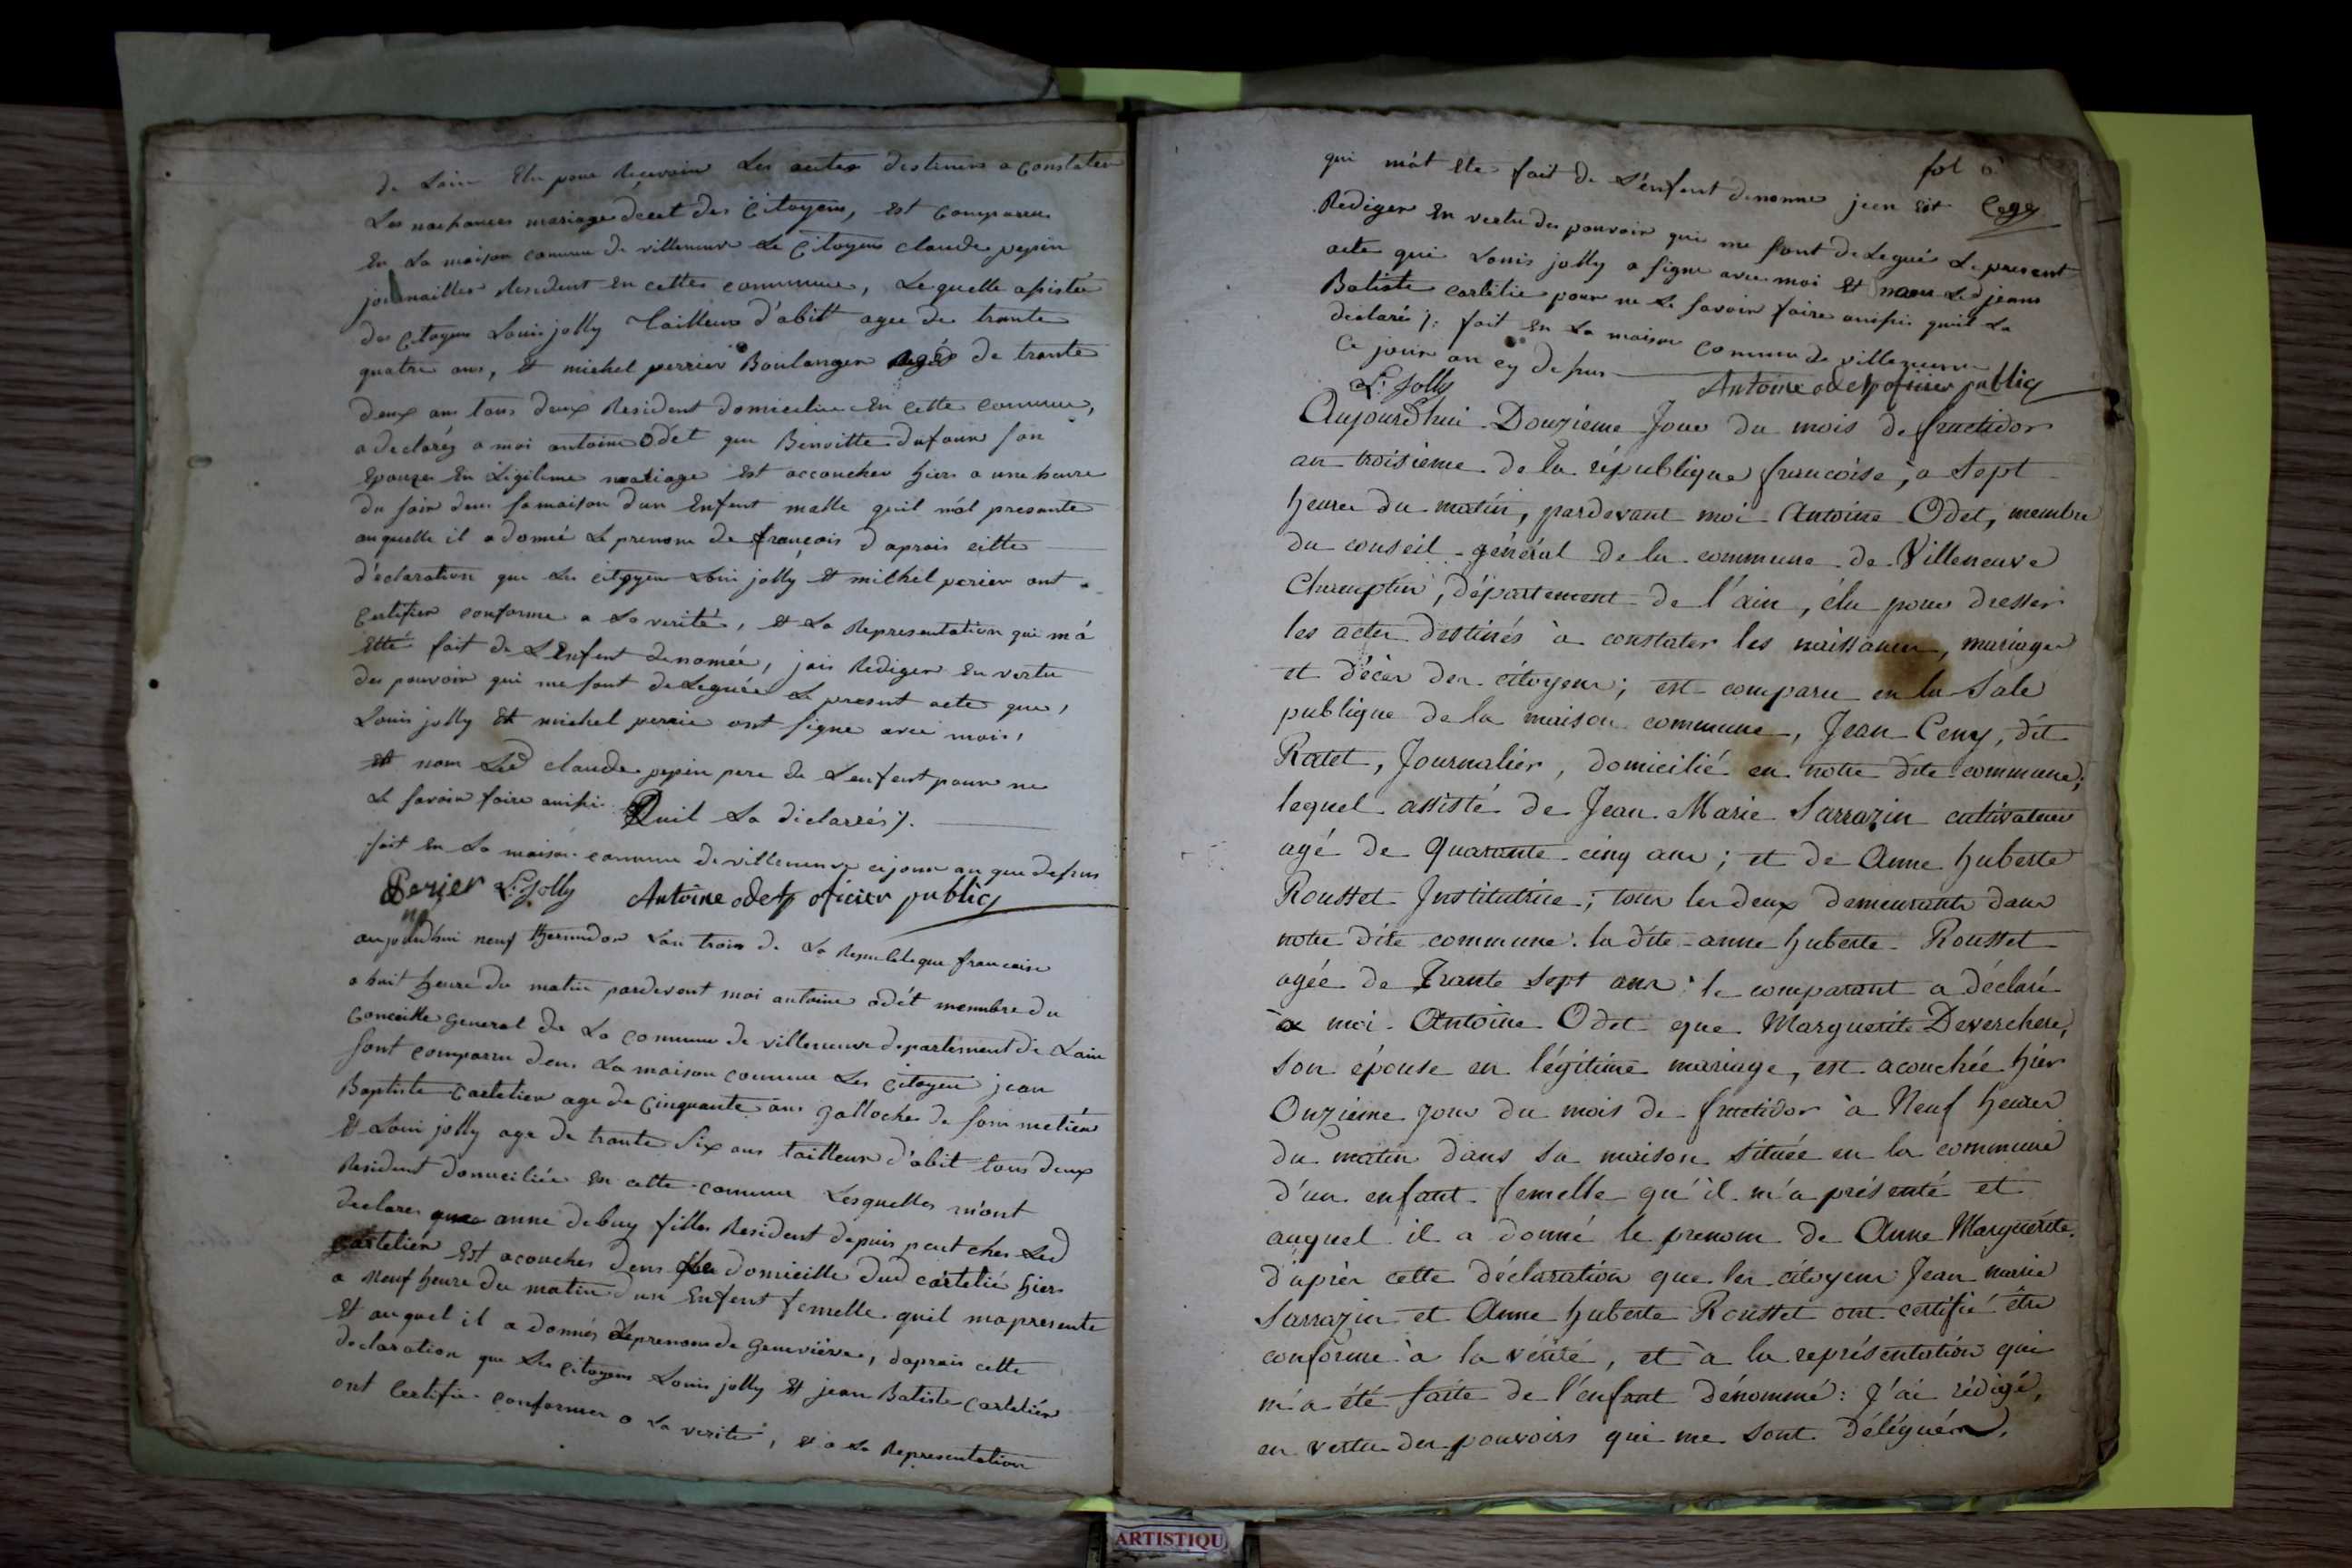 de Lain Elu pour Reçevoir Les autes destiners a Constater
Les naissances mariage deect des Citoyens, est Comparru
En La maison comune de villeneuve Le Citoyens claude pepin
journaillier Resident en cettes commune, Lequelle asistée
des Citoyens Louis jolly Tailleurs d'abitt agee de trante
quatre ans, Et michel perrier Boulanger agés de trante
deux ans tous deux Resident domicilie En Cette Commune,
a declaréz a moi antoine Odet que Benoitte dufour son
Epouze En Légitime mariage Est accoucher hiers a une heure
du soir dans sa maison dun Enfent malle quil m'at presante
auquelle il a donné Le prenom de françois daprais cette
déclaration que Les citoyens Loui jolly Et milhel perier ont
Certifier conforme a La verité, Et La Representation qui m'a
Etté fait de L'Enfent denomée, jais Rediger En vertu
des pouvoir qui me sont deleguée Le present acte que,
Louis jolly Et michel perrie ont signe avec mois,
Et nom Led claude pepin pere de Lenfent pour ne
Le savoir faire ainssi Quil La diclarrés /.
fait En La maison commune de villeneuve ce jour an que desus
Perier L. Jolly Antoine odet oficier public
aujourdhui neuf thermidor Lan trois de La Republeque francaise
a huit heure du matin pardevent moi antoine odét membre du
Conceille General de La Commune de villeneuve departement de Lain
sont comparru dens La maison comune Les Citoyen jean
Baptiste Cartelier age de Cinquante ans Galloche de son metier
Et Loui jolly age de trante Six ans tailleur d'abit tous deux
Resident domiciliée En cette comune Lesquelles m'ont
declares que anne debuy filles Resident depuis peut ches Led
Cartelier Est acouches dens Le domicille dud cartelié hiers
a Neuf heure du matin dun Enfent femelle quil mapresente
Et auquel il a donnés Leprenom de Geneviève, daprais cette
declaration que Les Citoyens Louis jolly Et jean Batiste Cartelier
ont Certifie conformes a La verité, Et a La Representation
fol 6
qui m'at Ete fait de L'enfent denonme jeen Est
Rediger En vertu des pouvoir qui me sont delegué Le present
acte que Louis jolly a signe avec moi Et nom Led jeans
Batiste cartelie pour ne Le savoir faire ainssi quil La
declaré /. fait En La maison Commune de villeneuve
Ce jour an cy desus
L. Jolly Antoine odet oficier public
Aujourd'hui Douzieme Jour du mois de fructidor
an troisieme de la république françoise, à Sept
heures du matin, pardevant moi Antoine Odet, membre
du conseil général de la commune de Villeneuve
Champtin, département de l'ain, élu pour dresser
les actes destinés à constater les naissances, mariages
et décès des citoyens; est comparu en la Sale
publique de la maison commune, Jean Ceny, dit
Ratet, Journalier, domicilié en notre dite commune;
lequel assisté de Jean Marie Sarrazin cultivateur
agé de Quarante cinq ans; et de Anne huberte
Rousset Institutrice; tous les deux demeurants dans
notre dite commune. la dite anne huberte Rousset
agée de Trante Sept ans: le comparant a déclaré
à moi Antoine Odet que Marguerite Deverchere,
son épouse en légitime mariage, est acouchée hier
Onzieme jour du mois de fructidor à Neuf heures
du matin dans sa maison située en la commune
d'un enfant femelle qu'il m'a présenté et
auquel il a donné le prenom de Anne Marguerite.
d'après cette déclaration que les citoyens Jean marie
Sarrazin et Anne huberte Rousset ont certifié être
conforme à la vérité, et à la représentation qui
m'a été faite de l'enfant dénommé: J'ai rédigé,
en vertu des pouvoirs qui me sont délégués,
ARTISTIQU